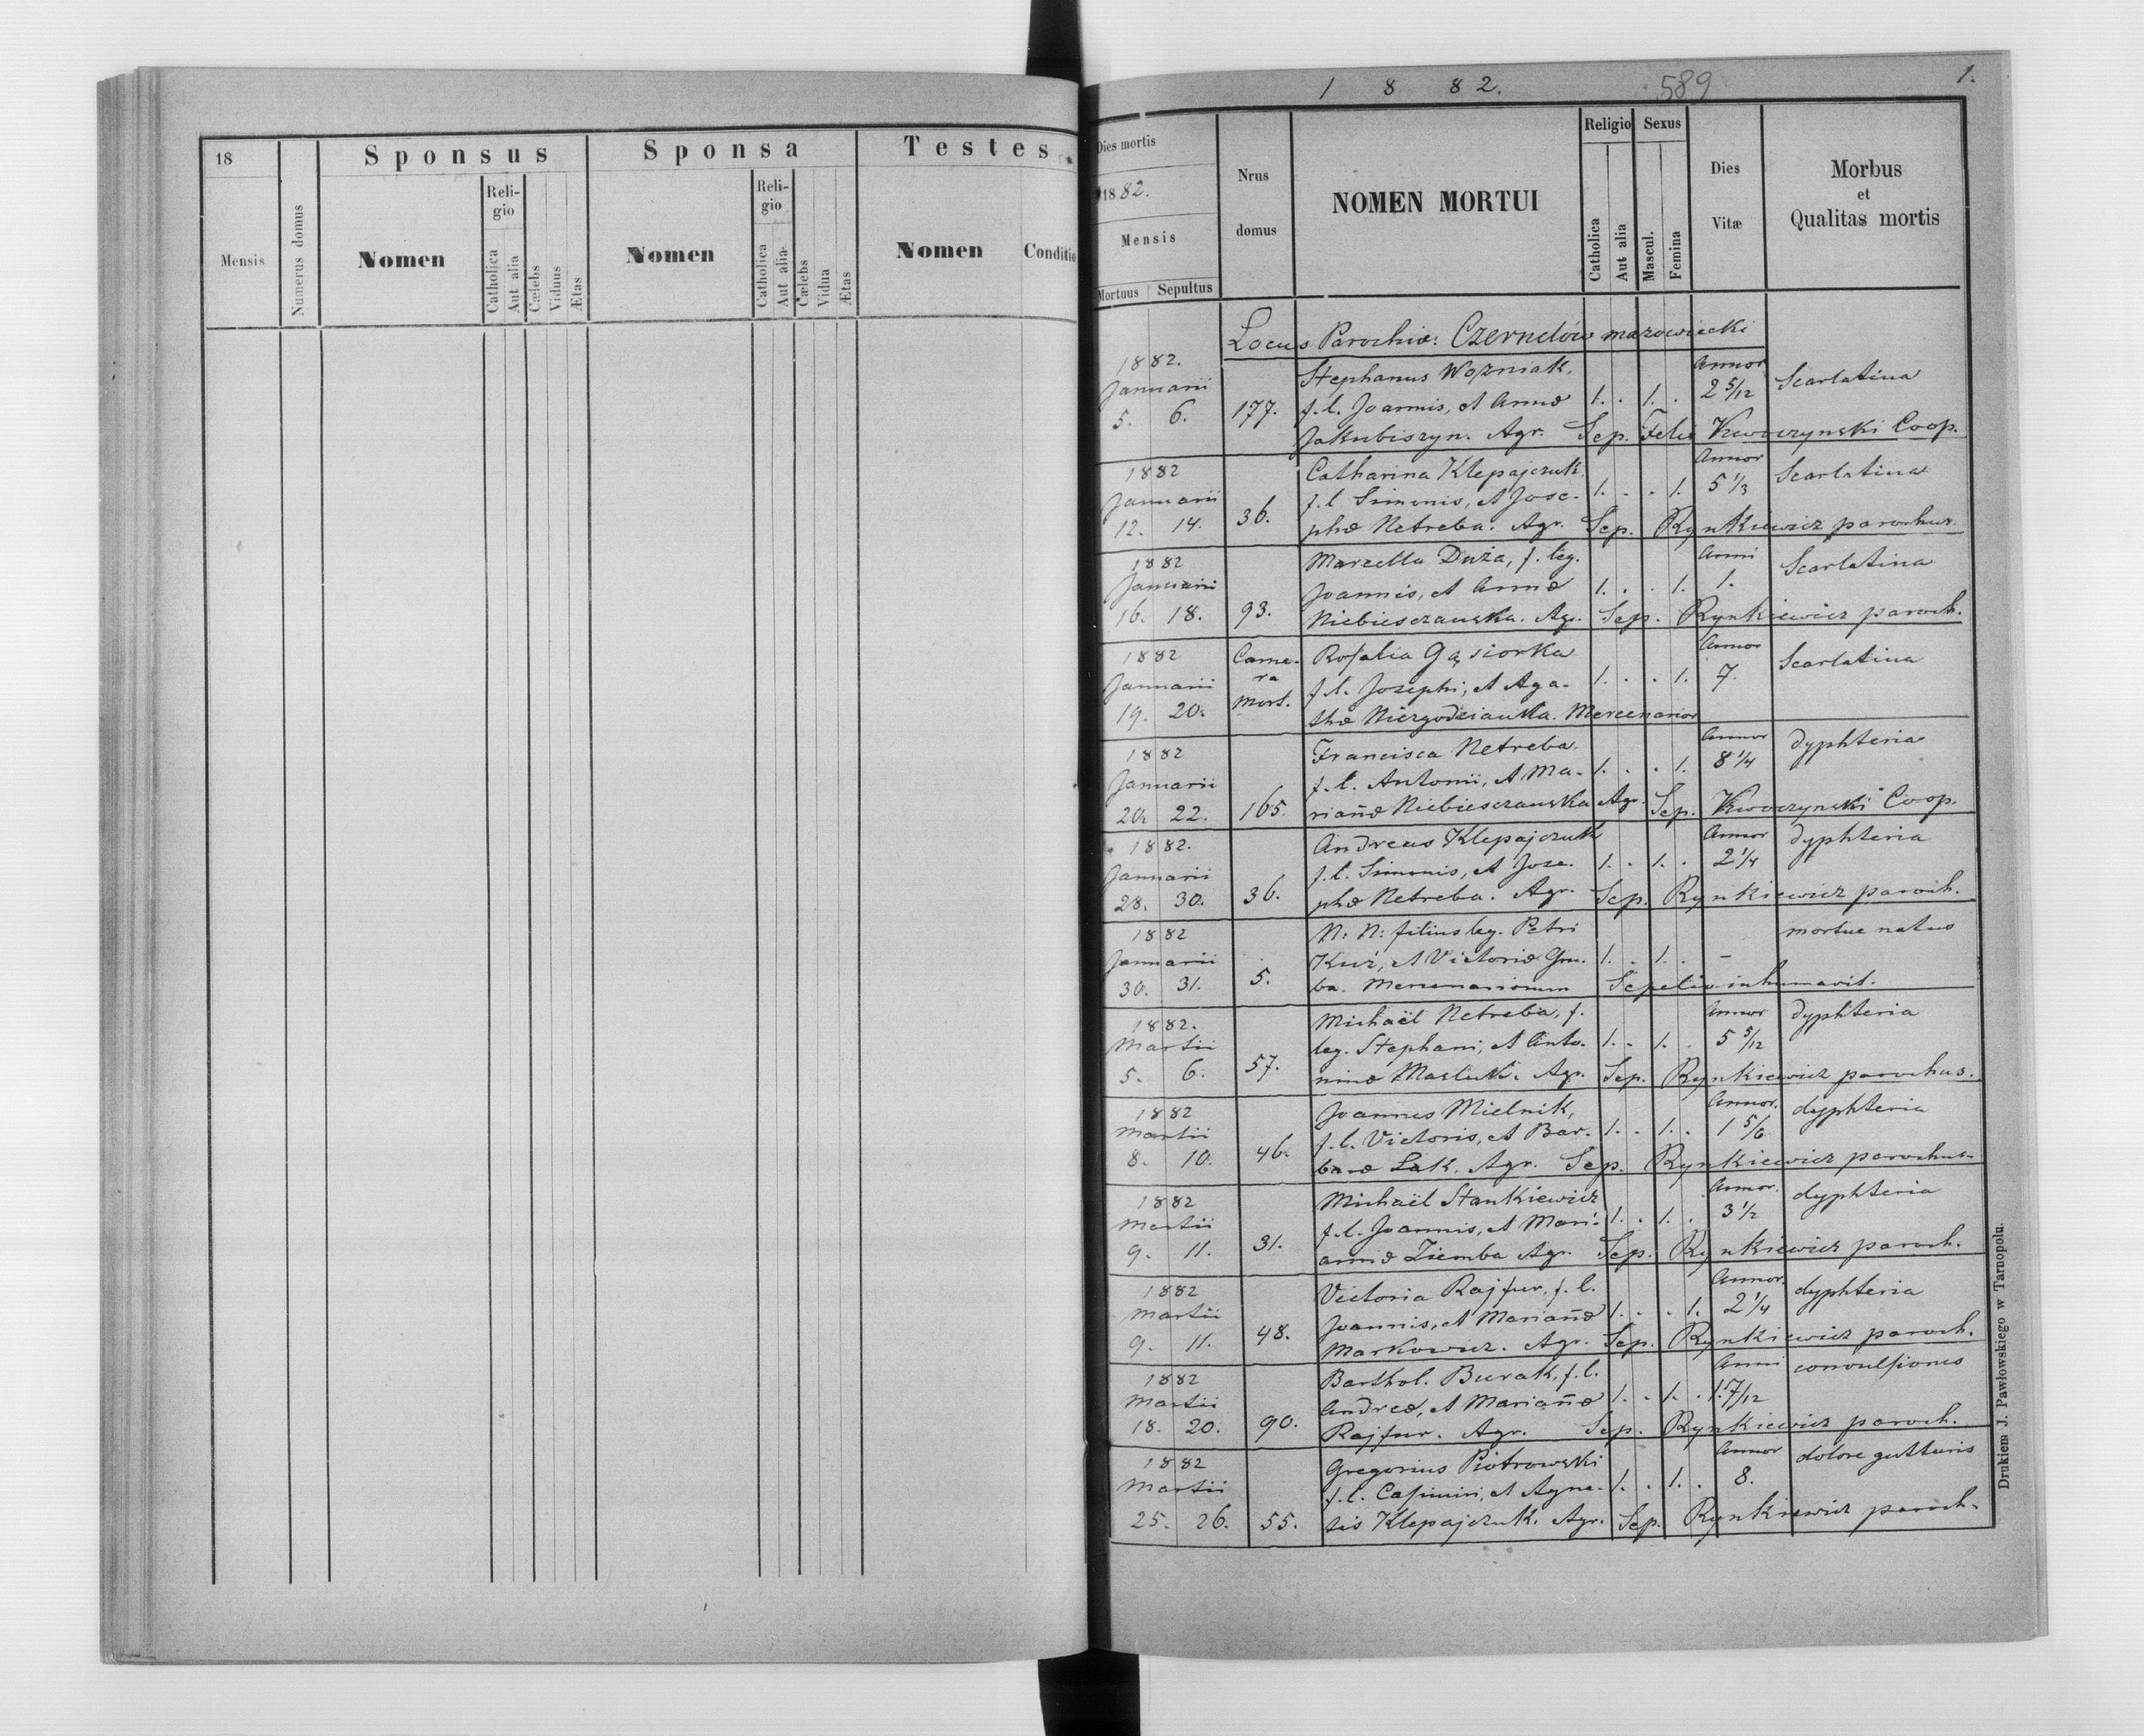 18
Sponsus
Sponsa
Testes.
Mensis
Numerus domus
Nomen
Religio
Catholica
Aut alia
Cælebs
Viduus
Ætas
Nomen
Religio
Catholica
Aut alia
Cælebs
Vidua
Ætas
Nomen
Conditio
1 8 8 2.
589
1.
Dies mortis
1882.
Mensis
Mortuus Sepultus
Nrus
domus
NOMEN MORTUI
Religio
Catholica
Aut alia
Sexus
Mascul.
Femina
Dies
Vitæ
Morbus
et
Qualitas mortis
Locus Parochiæ: Czernelów mazowiecki
1882. Stephanus Wozniak, Annor
Januarii f.l. Joannis, et Annæ 1. . 1. . 2 5/12 Scarlatina
5. 6. 177. Jakubiszyn. Agr. Sep. Kwoczynski Coop.
1882 Catharina Klepajczuk Annor
Januarii f.l. Simonis, et Jose- 1. . . 1. 5 1/3 Scarlatina
12. 14. 36. phæ Netreba. Agr. Sep. Rynkiewicz parochus.
1882 Marzella Duża, f. leg. Anni
Januarii Joannis, et Annæ 1. . . 1. 1. Scarlatina
16. 18. 93. Niebieszczanska. Agr. Sep. Rynkiewicz paroch.
1882 Came- Rosalia Gąsiorka Annor
Januarii ra f.l. Josephi, et Aga- 1. . . 1. 7. Scarlatina
19. 20. mort. thæ Niezgodzianka. Mercenarior
1882 Francisca Netreba. Annor dyphteria
Januarii f.l. Antonii, et Ma- 1. . . 1. 8 1/4
20. 22. 165. riañæ Niebieszczanska Agr. Sep. Kwoczynski Coop.
1882. Andreas Klepajczuk Annor dyphteria
Januarii f.l. Simonis, et Jose- 1. . 1. . 2 1/4
28. 30. 36. phæ Netreba. Agr. Sep. Rynkiewicz paroch.
1882 N: N: filius leg. Petri mortue natus
Januarii Kuź, et Victoriæ Gru- 1. . 1. . -
30. 31. 5. ba. Mercenariorum inhumavit.
1882. Michaël Netreba, f. Annor dyphteria
Martii leg. Stephani, et Anto- 1. . 1. . 5 5/12
5. 6. 57. ninæ Masluk. Agr. Sep. Rynkiewicz parochus.
1882 Joannes Mielnik, Annor. dyphteria
Martii f.l. Victoris, et Bar- 1. . 1. . 1 5/6
8. 10. 46. baræ Łak. Agr. Sep. Rynkiewicz parochus.
1882 Michaël Stankiewicz Annor. dyphteria
Martii f.l. Joannis, et Mari- 1. . 1. . 3 1/2
9. 11. 31. annæ Ziemba Agr. Sep. Rynkiewicz paroch.
1882 Victoria Rajfur, f.l. Annor. dyphteria
Martii Joannis, et Mariañæ 1. . . 1. 2 1/4
9. 11. 48. Markowicz. Agr. Sep. Rynkiewicz paroch.
1882 Barthol. Burak, f.l. Anni convulsiones
Martii Andreæ, et Mariañæ 1. . 1. . 1. 7/12
18. 20. 90. Rajfur. Agr. Sep. Rynkiewicz paroch.
1882 Gregorius Piotrowski Annor dolore gutturis
Martii f.l. Casimiri, et Agne- 1. . 1. . 8.
25. 26. 55. tis Klepajczuk. Agr. Sep. Rynkiewicz paroch.
Drukiem J. Pawłowskiego w Tarnopolu.